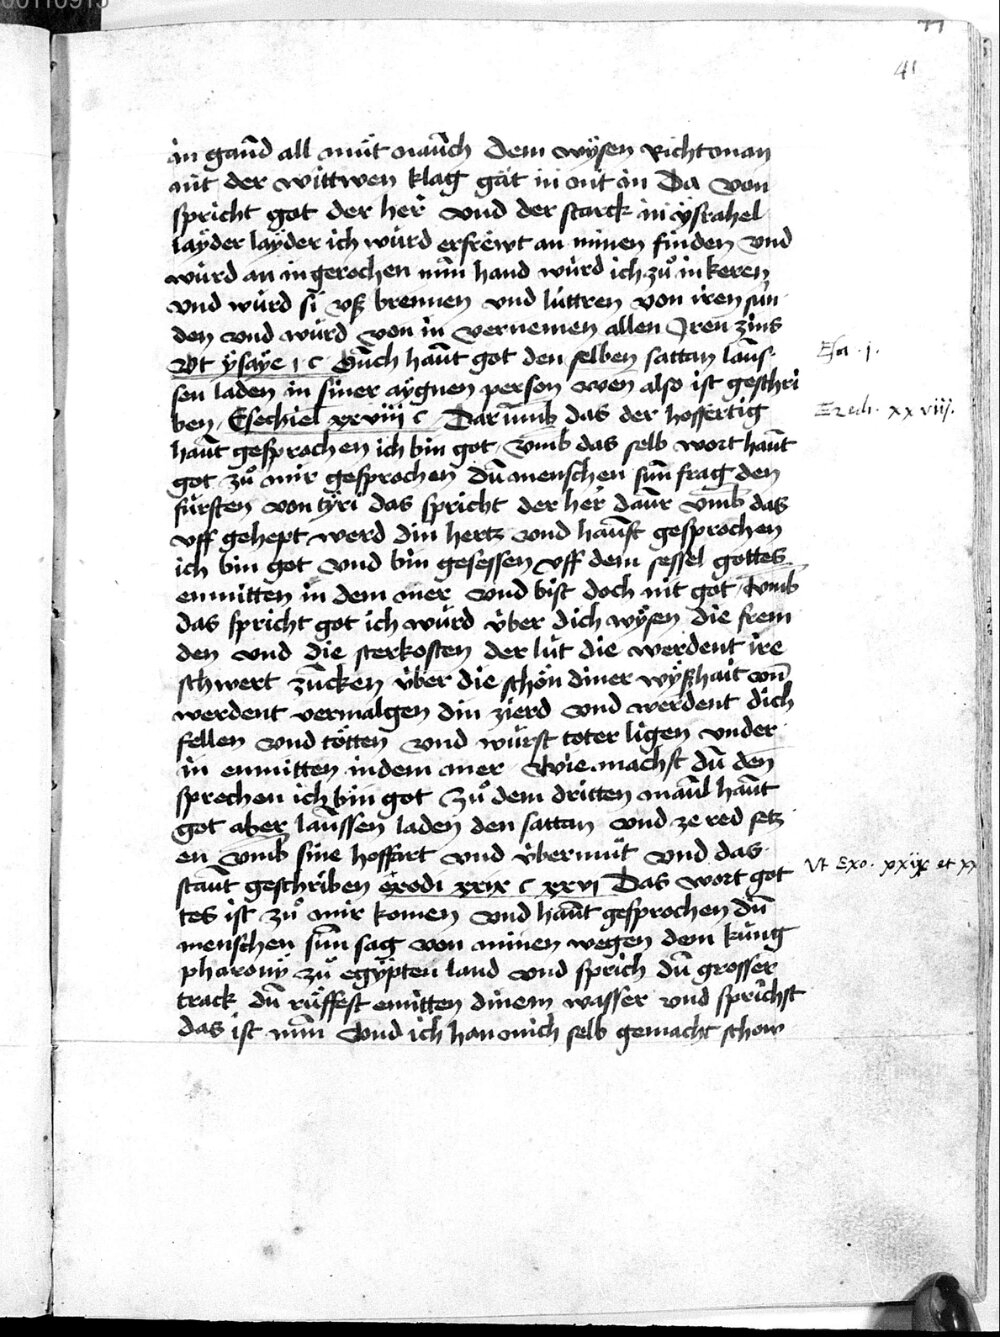 00110915
77
41
in gand all müt nauch dem wÿsen Richtman
mit der wittwen klag gät in mit in Da von
spricht got der her und der starck in ÿsrahel
laÿder laÿder ich würd erfrëwt an minen finden und
würd an in gerochen min hand würd ich zů in keren
und würd si uß brennen und lüttren von iren sün
den und würd von in vernemen allen Iren zins
Vt ÿsaÿe i c Ouch haut got den selben sattan laus
sen laden in siner aÿgnen person wen also ist geschri
ben Esechiel xxviii c Darumb das der hoffertig
haut gesprochen ich bin got Umb das selb wort haut
got zů mir gesprochen Du menschen sun frag den
fürsten von tÿri das spricht der her daur umb das
uff gehept werd din hertz und haust gesprochen
ich bin got und bin gesessen uff dem sessel gottes
enmitten in dem mer und bist doch nit got Umb
das spricht got ich würd über dich wÿsen die frem
den und die sterkosten der lüt die werdent ire
schwert zucken über die schön diner wÿßhait un
werdent vermalgen din zierd und werdent dich
fellen und tötten und würst toter ligen under
in enmitten in dem mer Wie machst du den
sprechen ich bin got Zů dem dritten maul haut
got aber laussen laden den sattan und ze red setz
en umb sine hoffart und übermüt und das
staut geschriben exodi xxix c xxvi Das wort got
tes ist zů mir komen und haut gesprochen du
menschen sun sag von minen wegen dem küng
pharonÿ zů egÿpten land und sprich du grosser
track du rüffest emitten dinem wasser und sprichst
das ist min Und ich han mich selb gemacht schow
Esa. j.
Ezech. xxviij.
Vt Exo. xxiix et xx